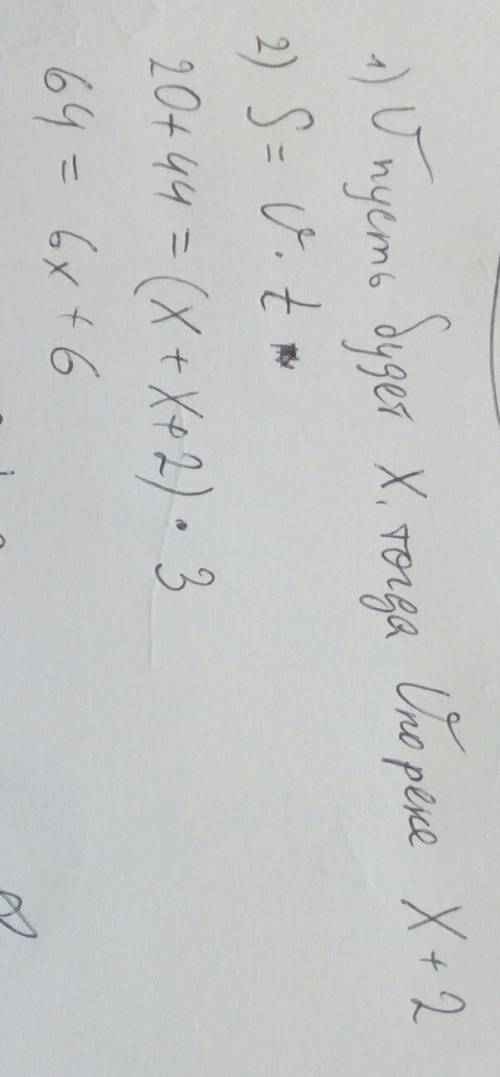 1) V пусть будет X, тогда V по реке X + 2
2) S = V · t
20 + 44 = (X + X + 2) · 3
64 = 6x + 6